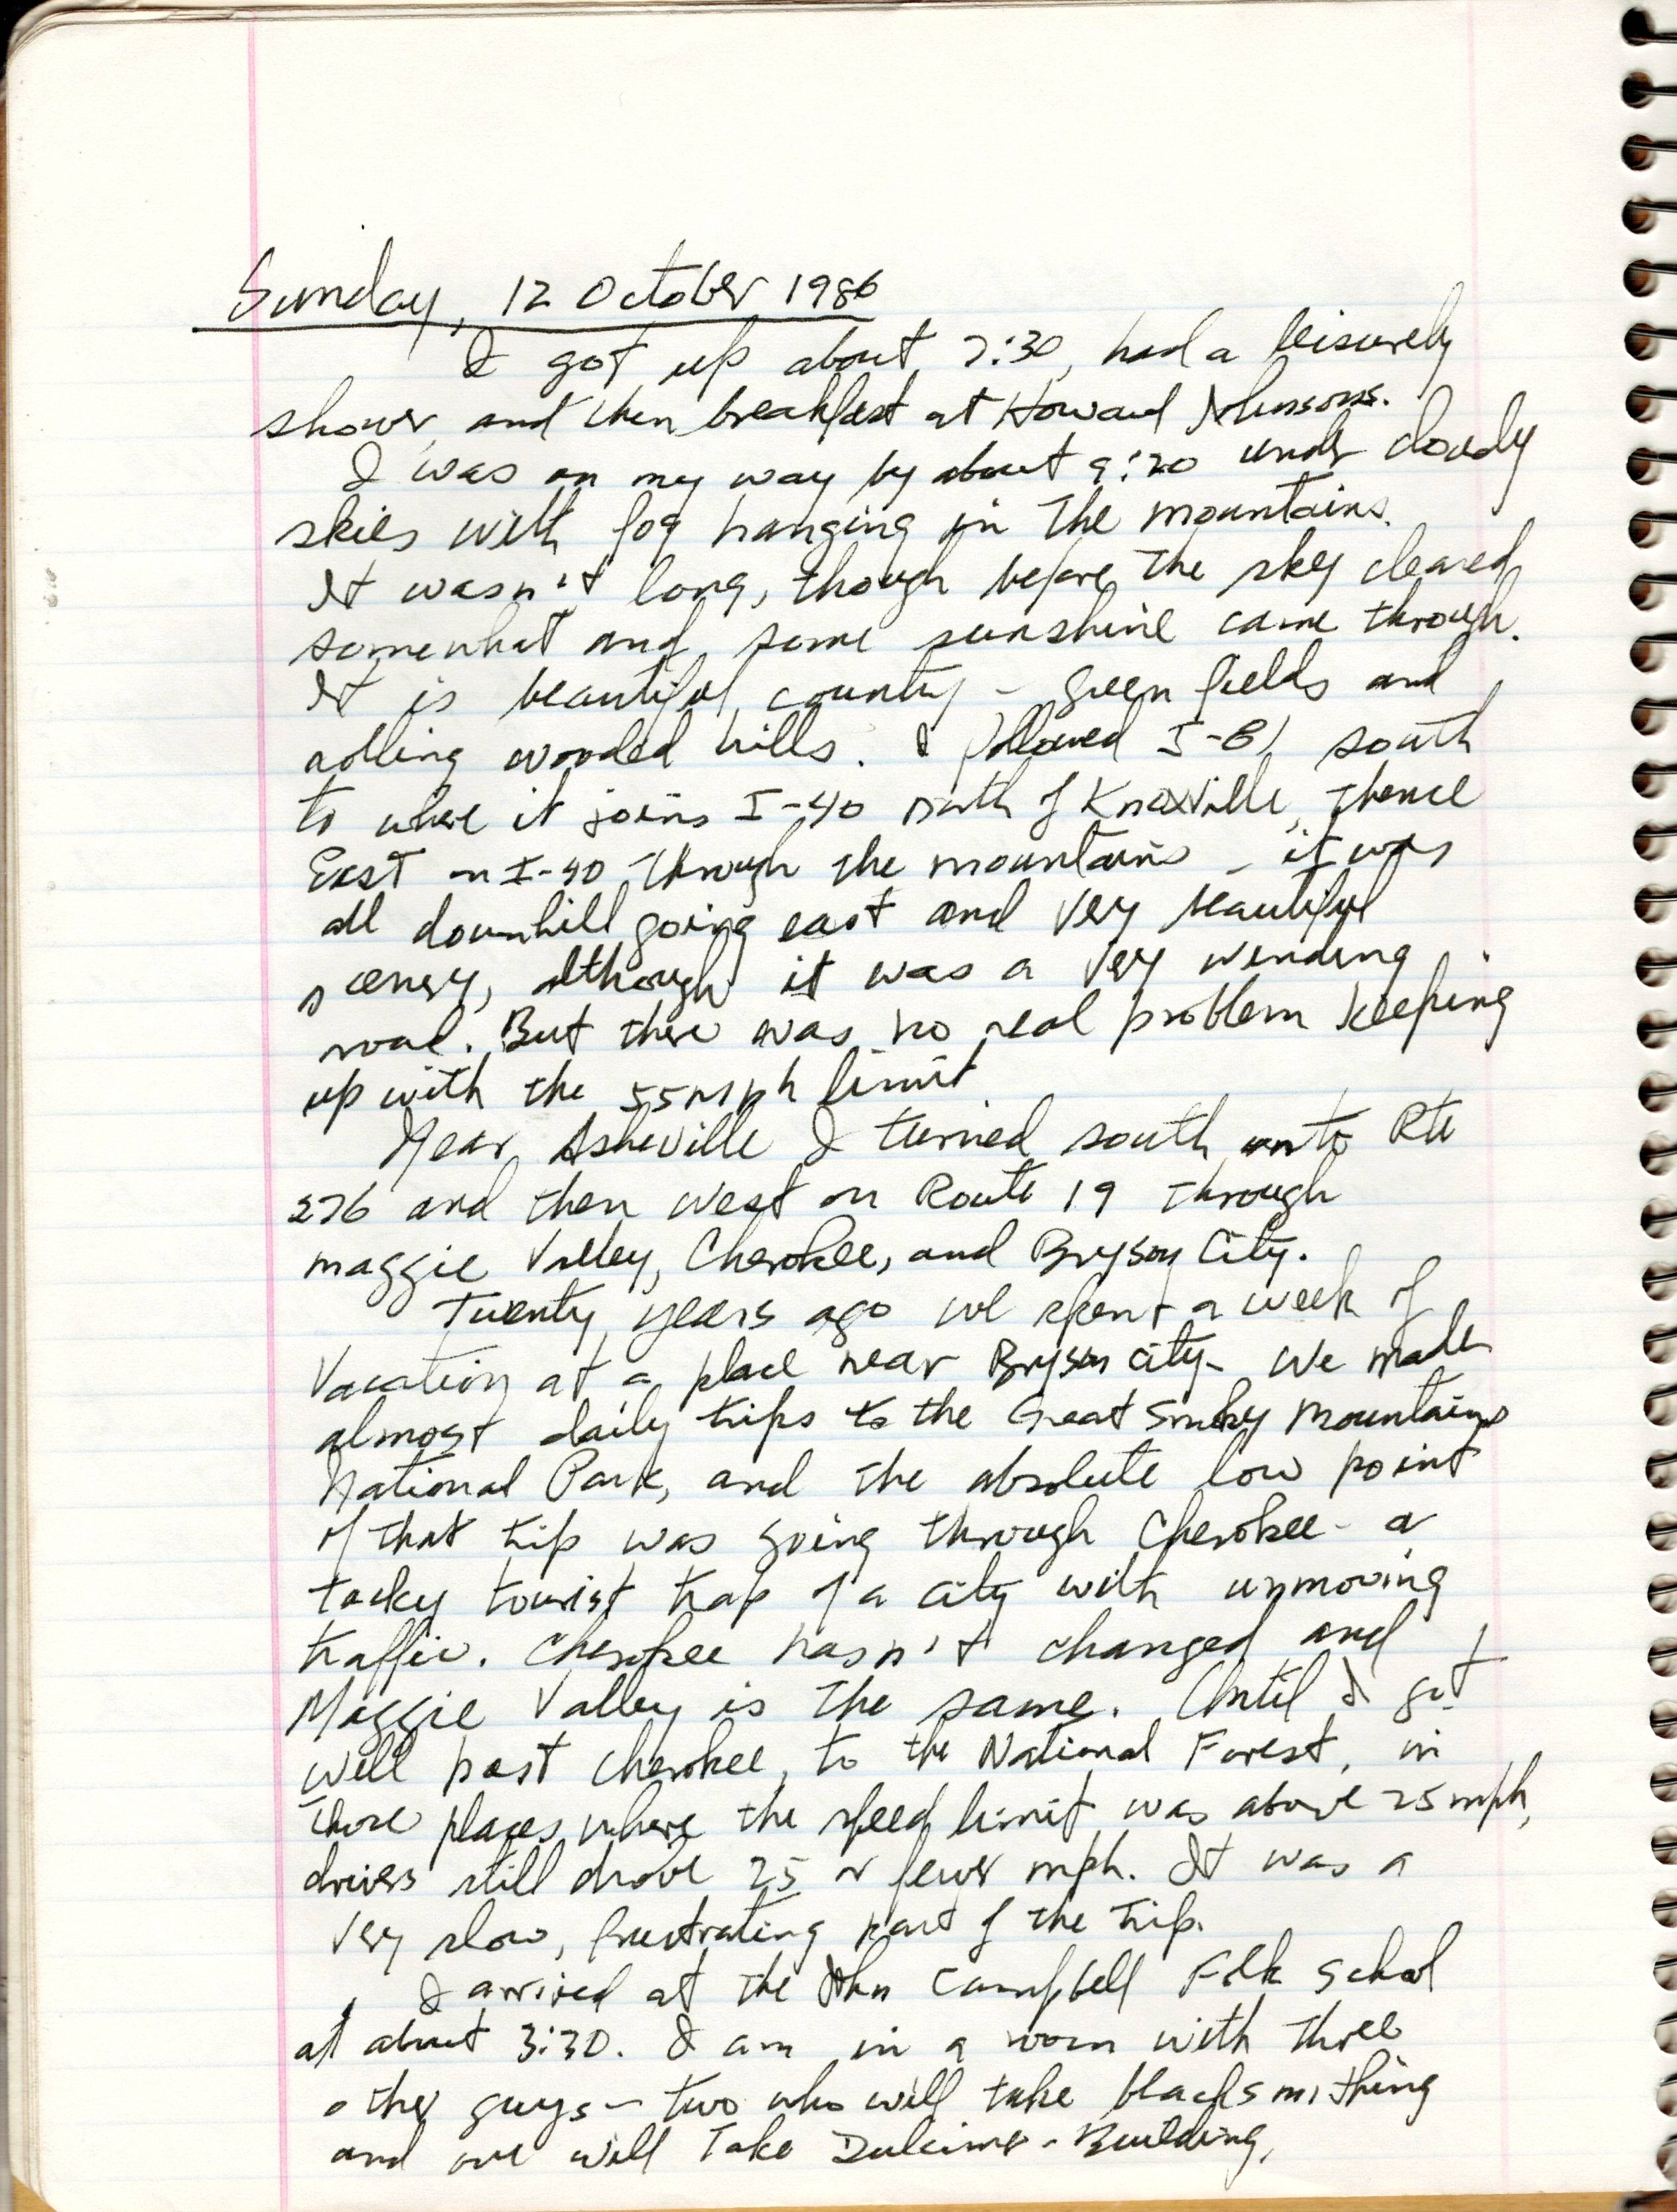 Sunday, 12 October 1986
I got up about 7:30, had a leisurely
shower, and then breakfast at Howard Johnsons.
I was on my way by about 9:20 under cloudy
skies with fog hanging in the mountains.
It wasn't long, though before the sky cleared
somewhat and some sunshine came through.
It is beautiful country - green fields and
rolling wooded hills. I followed I-81 south
to where it joins I-40 north of Knoxville, thence
East on I-40 through the mountains - it was
all downhill going east and very beautiful
scenery, although it was a very winding
road. But there was no real problem keeping
up with the 55 mph limit.
Near Asheville I turned south onto Rte
276 and then west on Route 19 through
Maggie Valley, Cherokee, and Bryson City.
Twenty years ago we spent a week of
vacation at a place near Bryson City - We made
almost daily trips to the Great Smoky Mountains
National Park, and the absolute low point
of that trip was going through Cherokee - a
tacky tourist trap of a city with unmoving
traffic. Cherokee hasn't changed and
Maggie Valley is the same. Until I got
well past Cherokee, to the National Forest, in
those places where the speed limit was above 25 mph,
drivers still drove 25 or fewer mph. It was a
very slow, frustrating part of the trip.
I arrived at the John Campbell Folk School
at about 3:30. I am in a room with three
other guys - two who will take blacksmithing
and one will take Dulcimer-Building.